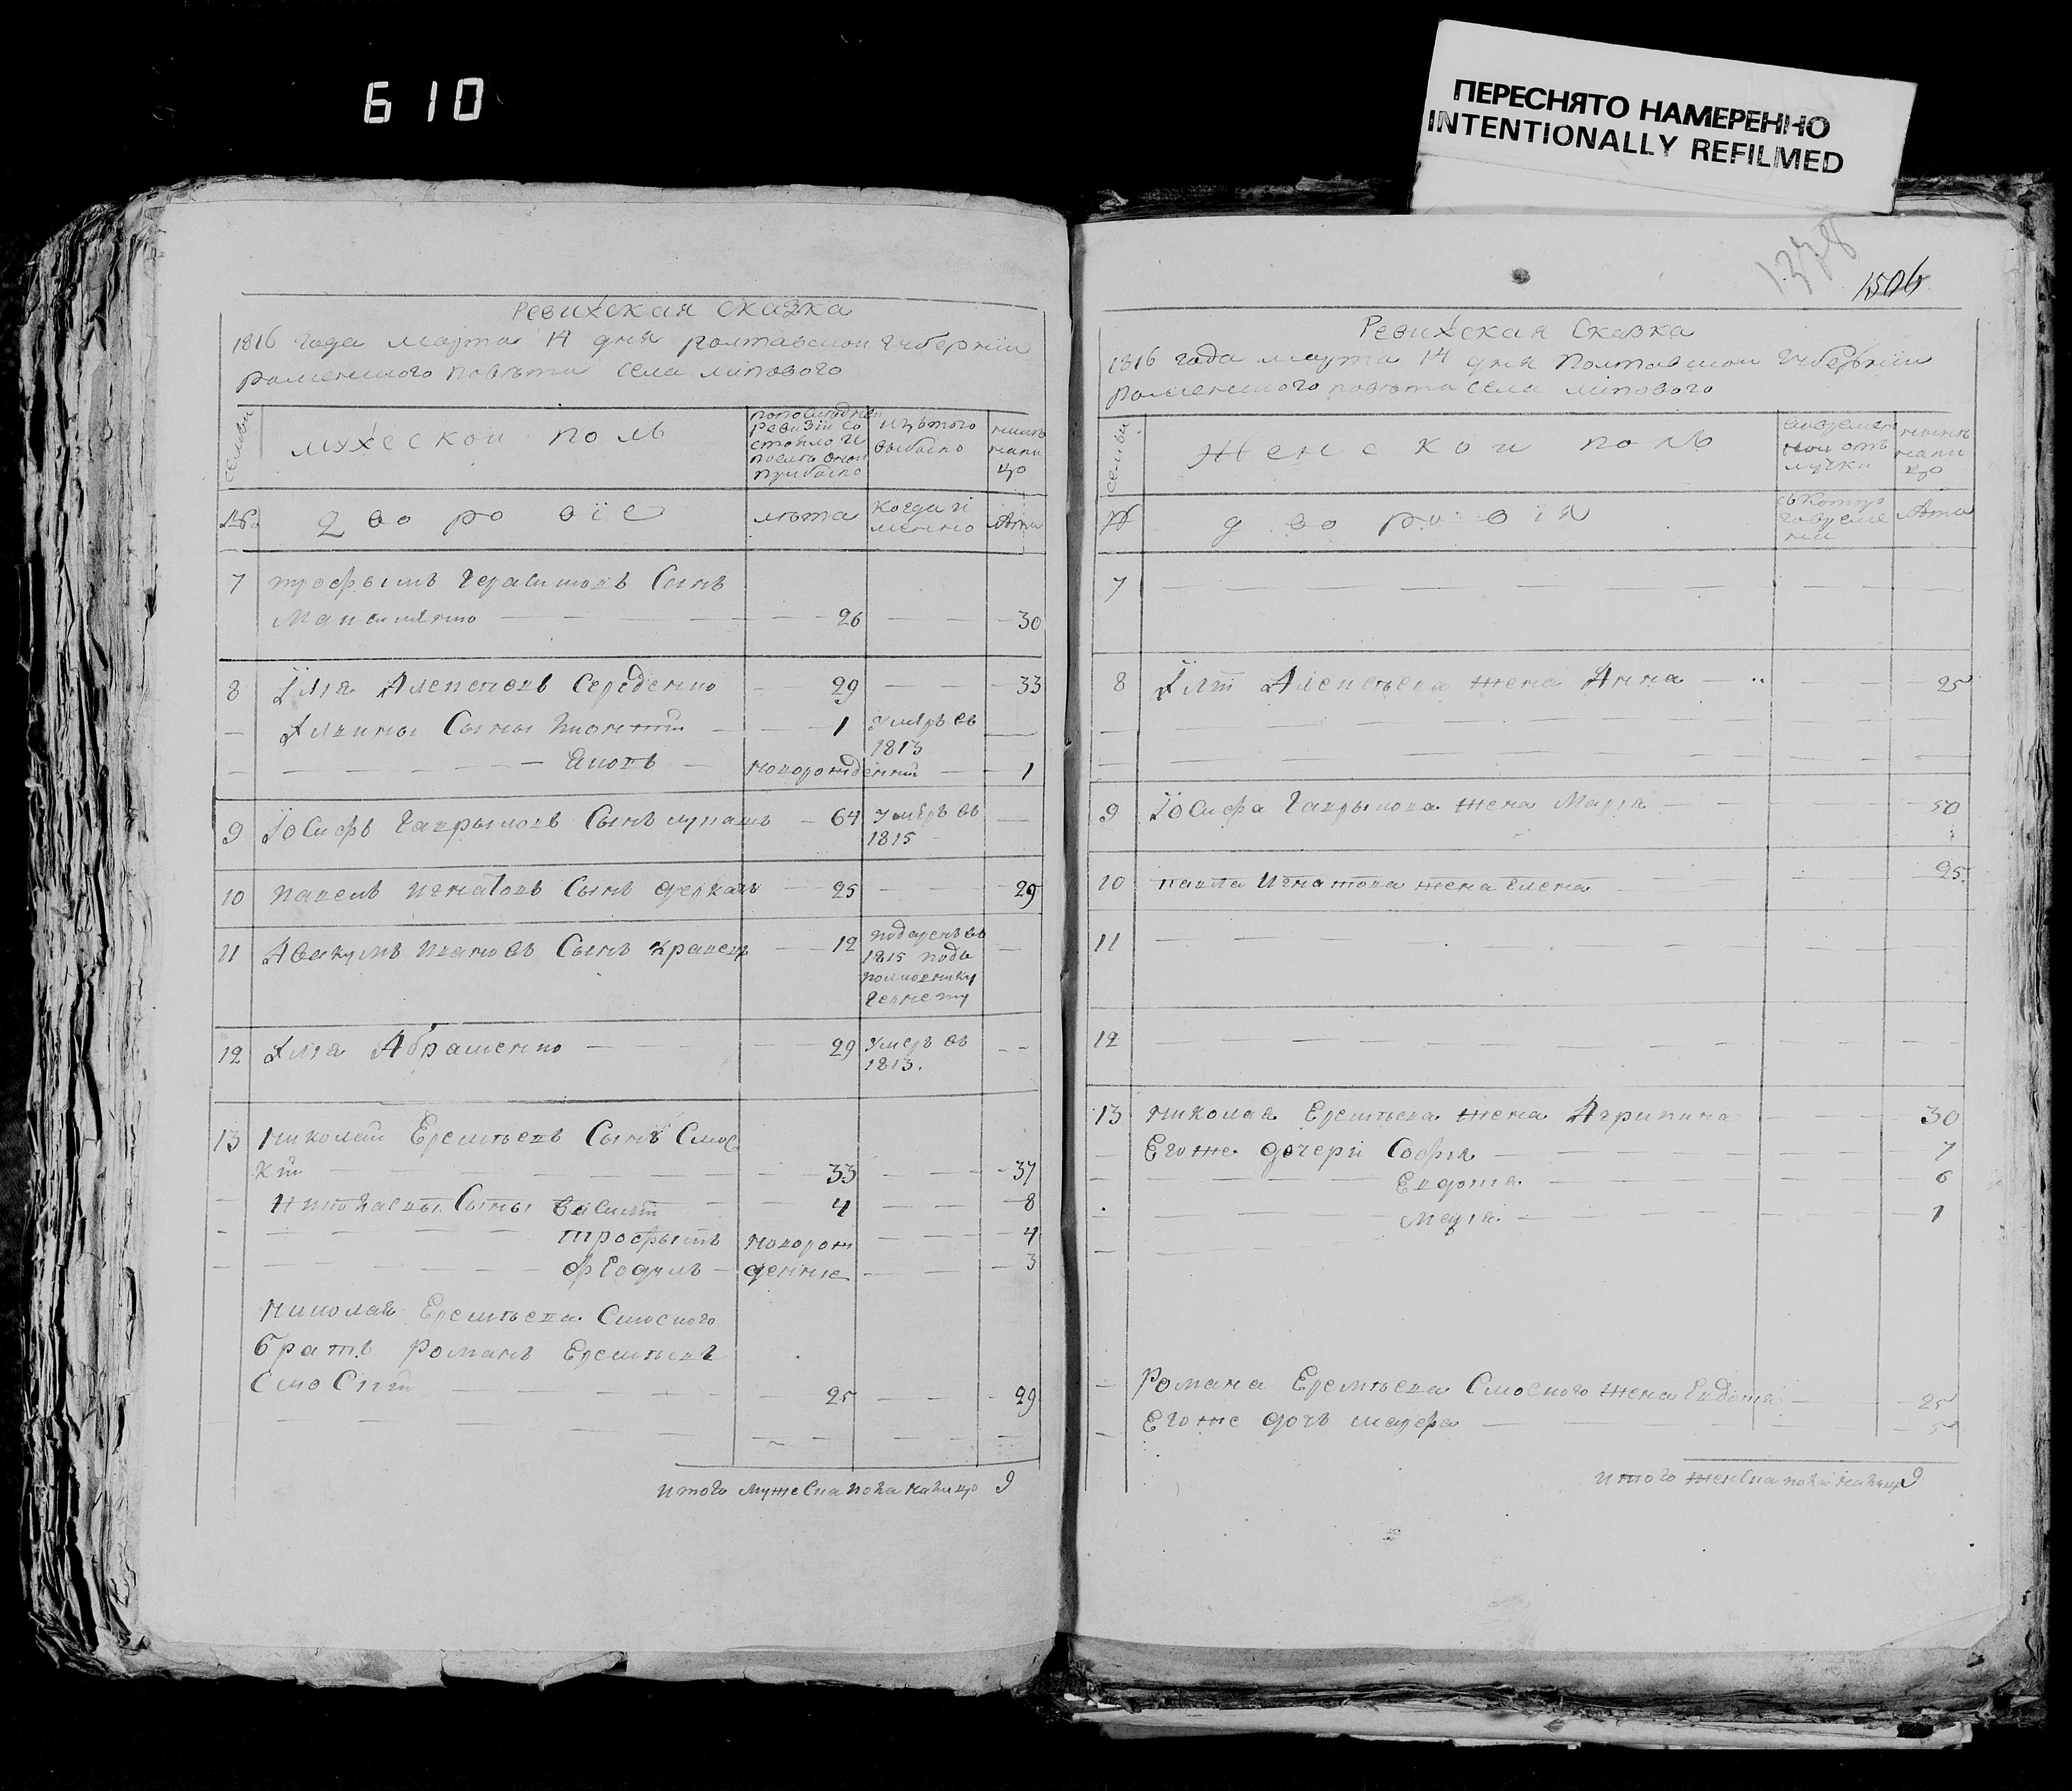 610
ПЕРЕСНЯТО НАМЕРЕННО
INTENTIONALLY REFILMED
Ревизская сказка
1816 года марта 14 дня полтавской губернїи
роменского повѣта села липового
семьи
мужеской полъ
по последней
ревизїи со
стояло и
послѣ оной
прибыло
изъ того
выбыло
нынѣ
на ли
цо
№
дворовїе
лѣта
Когда и
менно
лѣта
7 трофымъ Герасимовъ Сынъ
Максименко 26 30
8 Їлїя Алексеевъ Середенко 29 33
Їлїины Сыны
1 умеръ въ
1813
Яковъ новорожденнїй 1
9 Їосифъ Гаврыловъ Сынъ 64 умеръ въ
1815
10 павелъ игнатовъ Сынъ деркачъ 25 29
11 Авакумъ ивановъ Сынъ кравецъ 12 подаренъ въ
1815 подъ
полковнику
12 Їлїя Абраменко 29 умеръ въ
1813.
13 николай Еремѣевъ Сынъ Смос
кїй 33 37
николаевы Сыны василїй 4 8
трофымъ новорож 4
федумъ денные 3
николая Еремѣева Смоского
братъ романъ Еремѣевъ
Смоскїй 25 29
итого мужеска пола на лицо 9
1378
1506
Ревизская Сказка
1816 года марта 14 дня Полтавской губернїи
роменского повѣта села липового
семьи
Женской полъ
во времен
ной отъ
лучки
нынѣ
на ли
цо
№
дворовїя
съ которо
го време
ни
лѣта
7
8 Їлїи Алексеева жена Анна 25
9 Їосифа Гаврылова жена Марїя 50
10 павла Игнатова жена Елена 25.
11
12
13 николая Еремѣева жена Агрипина 30
Его же дочери Софїя 7
Евдокїя 6
марїя 1
Романа Еремѣева Смоского жена Евдокїя 25
Его же дочь марфа 5
итого женска пола на лицо 9